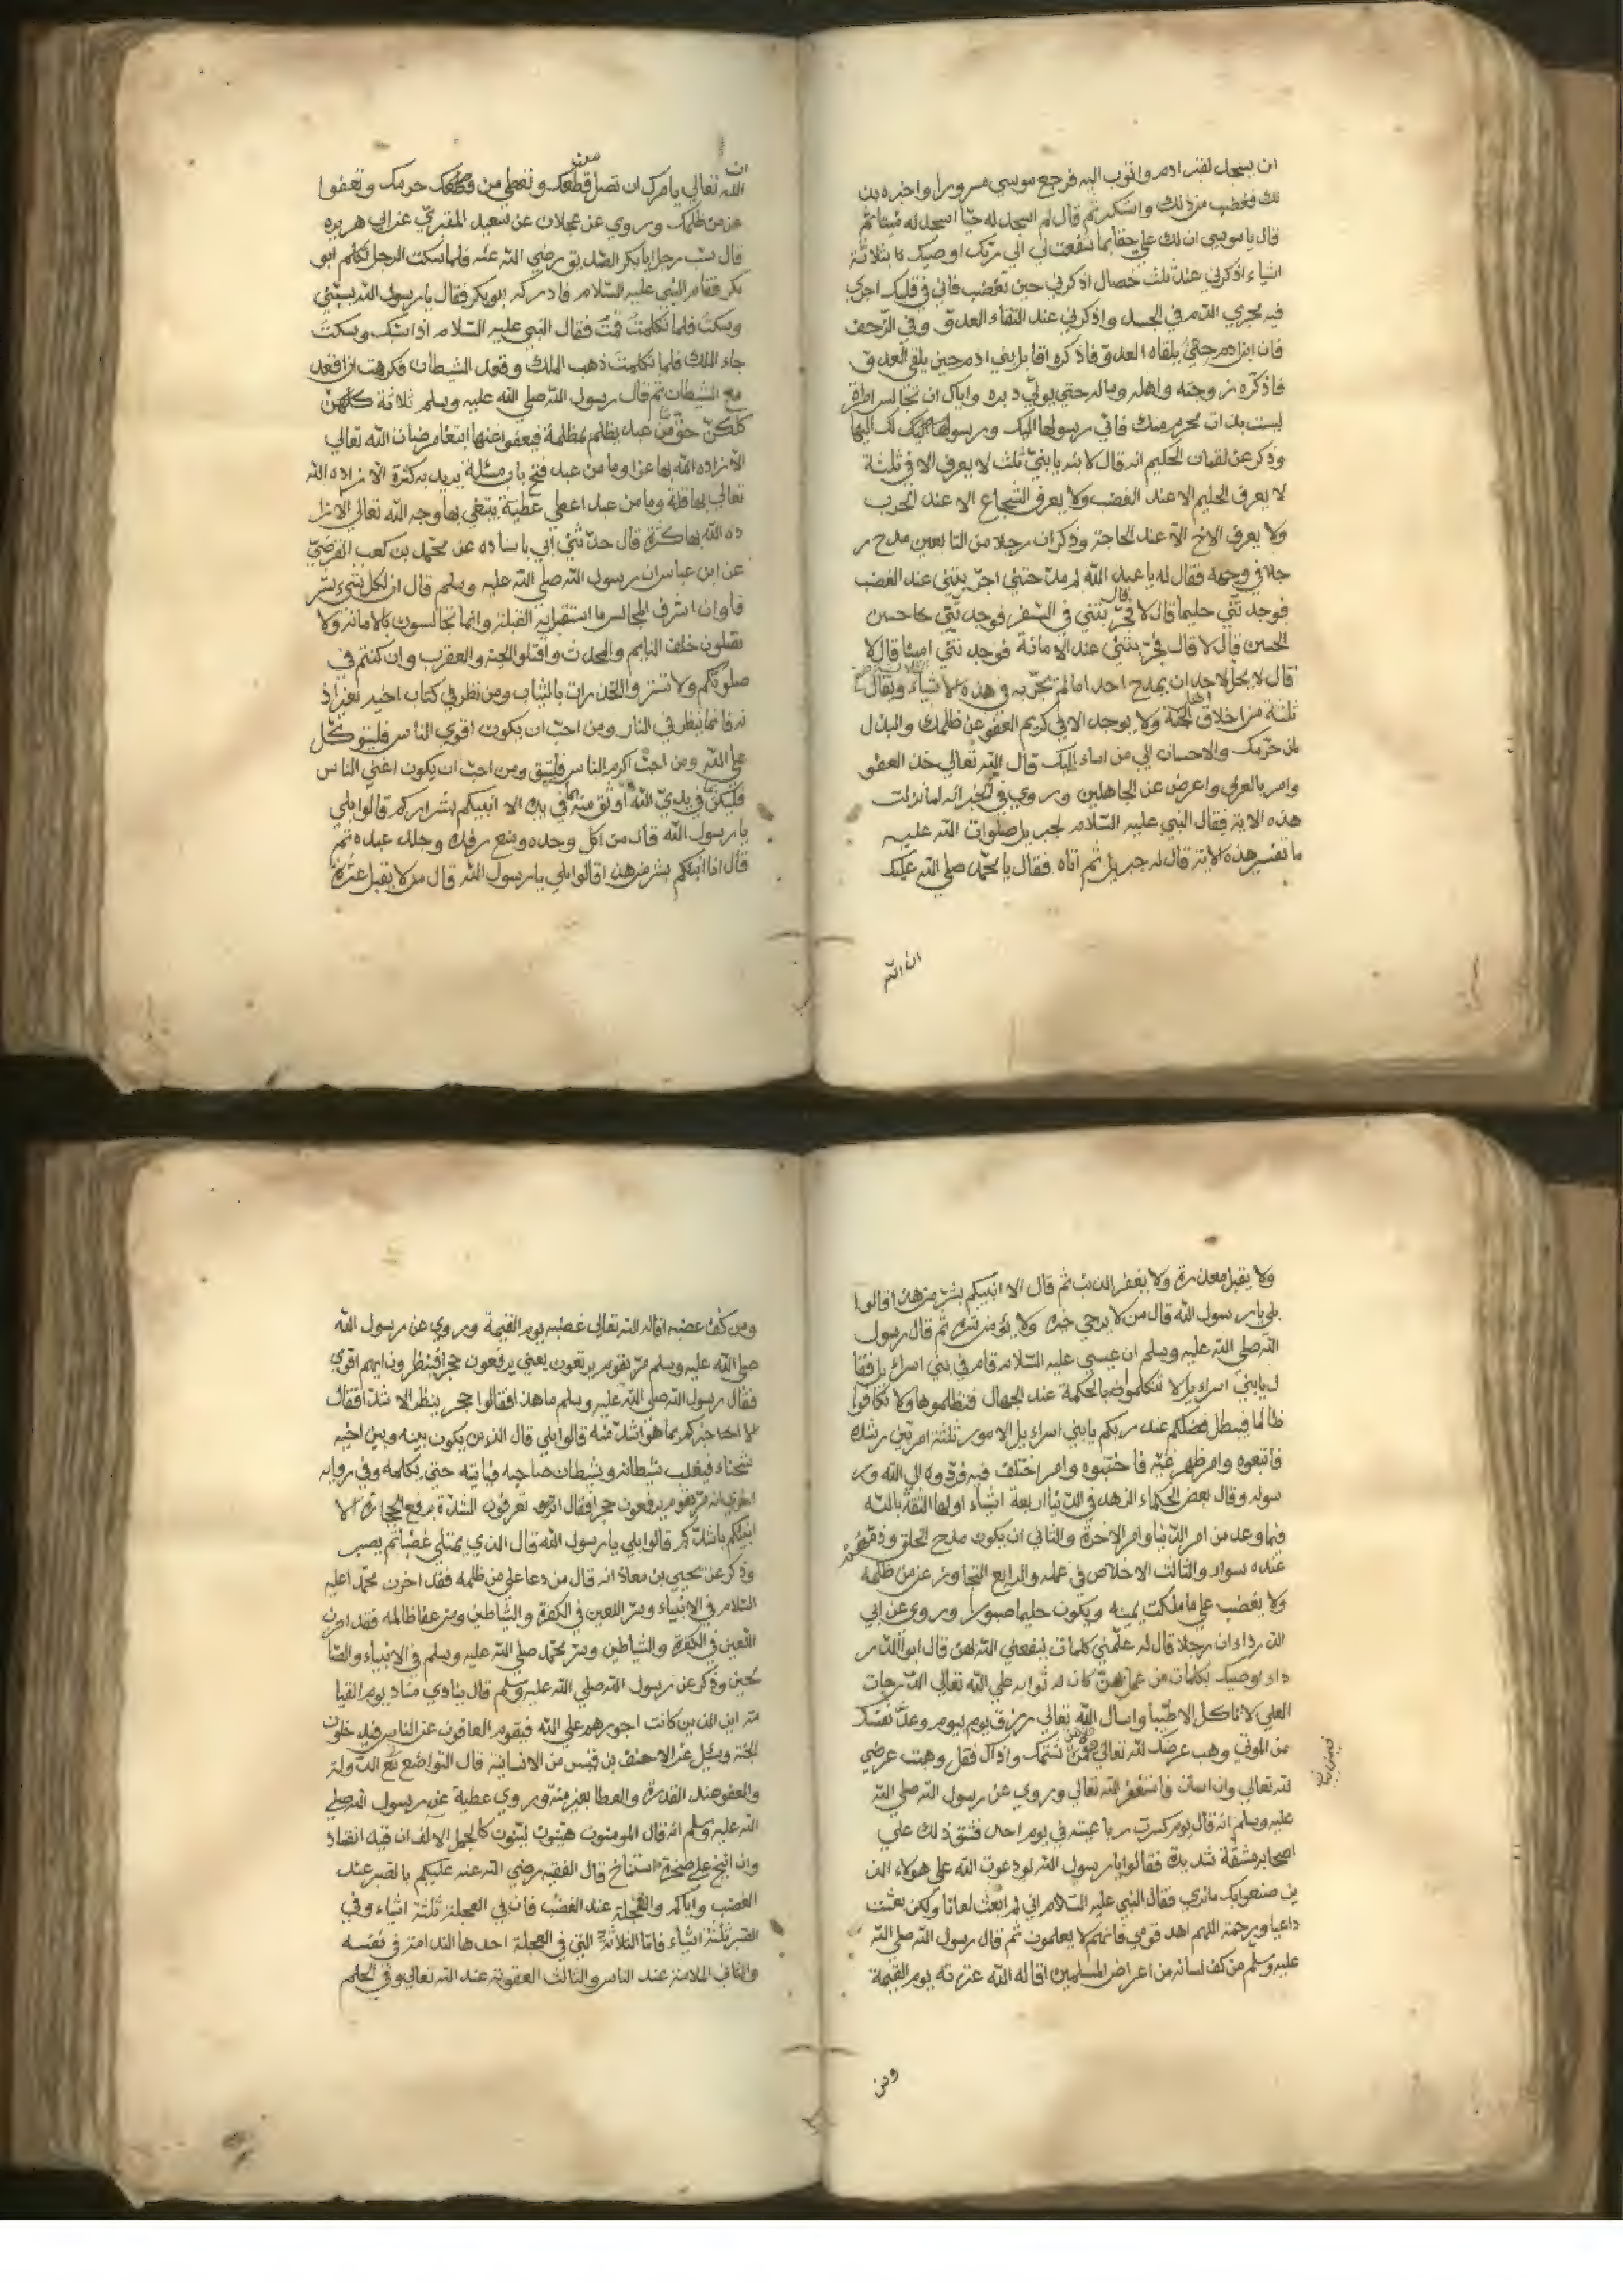 ان يسجد لقبر ادم واتوب اليه فرجع موسي مسرورا واخبره بذ
لك فغضب من ذلك واستكبر ثم قال لم اسجد له حيّا اسجد له ميتا ثم
قال يا موسي ان لك علي حقا بما شفعت لي الي ربّك اوصيك بثلاثة
اشياء اذكرني عند ثلث خصال اذكرني حين تغضب فاني في قلبك اجري
فيه مجري الدّم في الجسد واذكرني عند التقاء العدوّ وفي الزّحف
فان ابن ادم حتّي يلقاه العدوّ فاذكره اقابل بني ادم حين يلقي العدوّ
فاذكّره زوجته واهله وماله حتي يولّي دبره واياك ان تجالس امراة
ليست بذات محرم منك فاني رسولها اليك ورسولك اليها
وذكر عن لقمان الحكيم انه قال لابنه يا بنيّ ثلث لا يعرف الا في ثلثة
لا يعرف الحليم الا عند الغضب ولا يعرف الشجاع الا عند الحرب
ولا يعرف الاخ الاّ عند الحاجة وذكر ان رجلا من التابعين مدح ر
جلا في وجهه فقال له يا عبد الله لم مدحتني اجرّبتني عند الغضب
فوجدتّني حليما قال لا قال فجرّبتني في السّفر فوجدتّني حاحسن
الحسن قال لا قال فجرّبتني عند الامانة فوجدتّني امينا قال لا
قال لا يحلّ لاحد ان يمدح احدا ما لم يجرّبه في هذه الاشياء ويقال
ثلثة من اخلاق اهل الجنّة ولا يوجد الا في كريم العفو عن ظلمك والبذل
لمن حرّمك والاحسان الي من اساء اليك قال الله تعالي خذ العفو
وامر بالعرف واعرض عن الجاهلين وروي في الخبر انه لما نزلت
هذه الاية فقال النبي عليه السّلام لجبريل صلوات الله عليه
ما تفسير هذه الاية قال له جبريل ثم اتاه فقال يا محمّد صلي الله عليك
ان الله
ان
الله تعالي يامرك ان تصل من قطعك وتعطي من حرمك وتعفوا
عن من ظلمك وروي عن عجلان عن سعيد المقبريّ عن ابي هريره
قال سبّ رجل ابا بكر الصّديق رضي الله عنه فلما سكت الرجل تكلم ابو
بكر فقام النبي عليه السّلام فادركه ابو بكر فقال يا رسول الله سبّني
وسكتّ فلما تكلمت قمت فقال النبي عليه السّلام اذا سبّك وسكتّ
جاء الملك فلما تكلمت ذهب الملك وقعد الشيطان فكرهت ان اقعد
مع الشيطان ثم قال رسول الله صلي الله عليه وسلم ثلاثة كلهنّ
كلكنّ حقّ ما من عبد يظلم بمظلمة فيعفوا عنها ابتغاء مرضات الله تعالي
الا زاده الله بها عزا وما من عبد فتح باب مسئلة يريد به كثرة الا زاده الله
تعالي بها قلة وما من عبد اعطي عطيّة يبتغي بها وجه الله تعالي الا زا
ده الله بها كثرة قال حدّثني ابي باسناده عن محمّد بن كعب القرضيّ
عن ابن عباس ان رسول الله صلي الله عليه وسلم قال ان لكل شيء شر
فا وان اشرف المجالس ما استقبل به القبلة وانما تجالسون بالامانة ولا
تصلون خلف النايم والمحدث واقتلوا الحية والعقرب وان كنتم في
صلوتكم ولا تستروا الجدرات بالثياب ومن نظر في كتاب اخيه بغير اذ
نه فانما ينظر في النار ومن احبّ ان يكون اقوي الناس فليتوكّل
علي الله ومن احبّ اكرم الناس فليتق ومن احبّ ان يكون اغني الناس
فليكن بما في يديّ الله اوثق منه بما في يده الا انبيكم بشراركم قالوا بلي
يا رسول الله قال من اكل وحده ومنع رفده وجلد عبده ثم
قال افا انبيكم بشر من هذا قالوا بلي يا رسول الله قال من لا يقبل عثرة
ولا يقبل معذرة ولا يغفر الذنب ثم قال الا انبيكم بشرّ من هذا قالوا
بلي يا رسول الله قال من لا يرجي خيره ولا يؤمن شره ثم قال رسول
الله صلي الله عليه وسلم ان عيسي عليه السّلام قام في بني اسرايل فقا
ل يا بني اسرايل لا تتكلموا بالحكمة عند الجهال فتظلموها ولا تكافوا
ظالما فيبطل فضلكم عند ربكم يا بني اسرايل الامور ثلثة امر بيّن رشده
فاتبعوه وامر ظهر غيّه فاجتنبوه وامر اختلف فيه فردّوه الي الله ور
سوله وقال بعض الحكماء الزهد في الدّنيا اربعة اشياء اولها الثقة بالله
فيما وعد من امر الدّنيا وامر الاخرة والثاني ان يكون مدح الخلق وذمّهم
عنده سواء والثالث الاخلاص في عمله والرابع التجاوز عن من ظلمه
ولا يغضب علي ما ملكت يمينه ويكون حليما صبورا وروي عن ابي
الدرداء ان رجلا قال له علّمني كلمات ينفعني الله بهن قال ابو الدّر
داء يوصيك بكلمات من عمل بهنّ كان له ثوابه علي الله تعالي الدّرجات
العلي لا تاكل الا طيّبا واسال الله تعالي رزق يوم بيوم وعدّ نفسك
من الموتي وهب عرضك لله تعالي فمن شتمك واذاك فقل وهبت عرضي
لله تعالي وان اسات فاستغفر الله تعالي وروي عن رسول الله صلي الله
عليه وسلم انه قال يوم كسرت رباعيته في يوم احد فشق ذلك علي
اصحابه مشقّة شديدة فقالوا يا رسول الله لو دعوت الله علي هولاء الذ
ين صنعوا بك ما نري فقال النبي عليه السّلام اني لم ابعث لعانا ولكن بعثت
داعيا ورحمة اللهم اهد قومي فانهم لا يعلمون ثم قال رسول الله صلي الله
عليه وسلّم من كف لسانه من اعراض المسلمين اقاله الله عثرته يوم القيمة
ومن
ومن كفّ غضبه اقاله الله تعالي غضبه يوم القيمة وروي عن رسول الله
صلي الله عليه وسلم مرّ بقوم يرتعون يعني يرفعون حجرا فينظرون ايهم اقوي
فقال رسول الله صلي الله عليه وسلم ما هذا فقالوا حجر ينظر الاشدّ افقال
الا اخبركم بما هو اشدّ منه قالوا بلي قال الذين يكون بينه وبين اخيه
شحناء فيغلب شيطانه وشيطان صاحبه فياتيه حتي يكلمه وفي رواية
اخري انه مرّ بقوم يرفعون حجرا فقال اترون تعرفون الشدّة برفع الحجارة الا
انبيكم باشدّكم قالوا بلي يا رسول الله قال الذي يمتلي غضبا ثم يصبر
وذكر عن يحيي بن معاذ انه قال من دعا علي من ظلمه فقد احزن محمّدا عليه
السّلام في الانبياء وسرّ اللعين في الكفرة والشّياطين ومن عفا ظالمه فقد احزن
اللعين في الكفرة والشياطين وسرّ محمّد صلي الله عليه وسلم في الانبياء والصّا
لحين وذكر عن رسول الله صلي الله عليه وسلّم قال ينادي مناد يوم القيا
مة اين الذين كانت اجورهم علي الله فيقوم العافون عن الناس فيدخلون
الجنّة وسئل عن الاحنف بن قيس من الانسانية قال التواضع مع الدّولة
والعفو عند القدرة والعطا بغير منّة وروي عطية عن رسول الله صلي
الله عليه وسلّم انه قال المومنون هيّنون ليّنون كالجمل الالف ان قيد انقاد
وان انيخ علي صخرة استناخ قال الفقيه رضي الله عنه عليكم بالصبر عند
الغضب واياكم والعجلة عند الغضب فان في العجلة ثلثة اشياء وفي
الصّبر ثلثة اشياء فامّا الثلاثة التي في العجلة احدها الندامة في نفسه
والثاني الملامة عند الناس والثالث العقوبة عند الله تعالي وفي الحلم